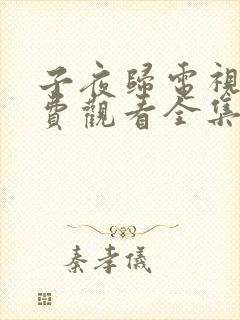 子夜歸電視
費觀看全集
秦孝儀